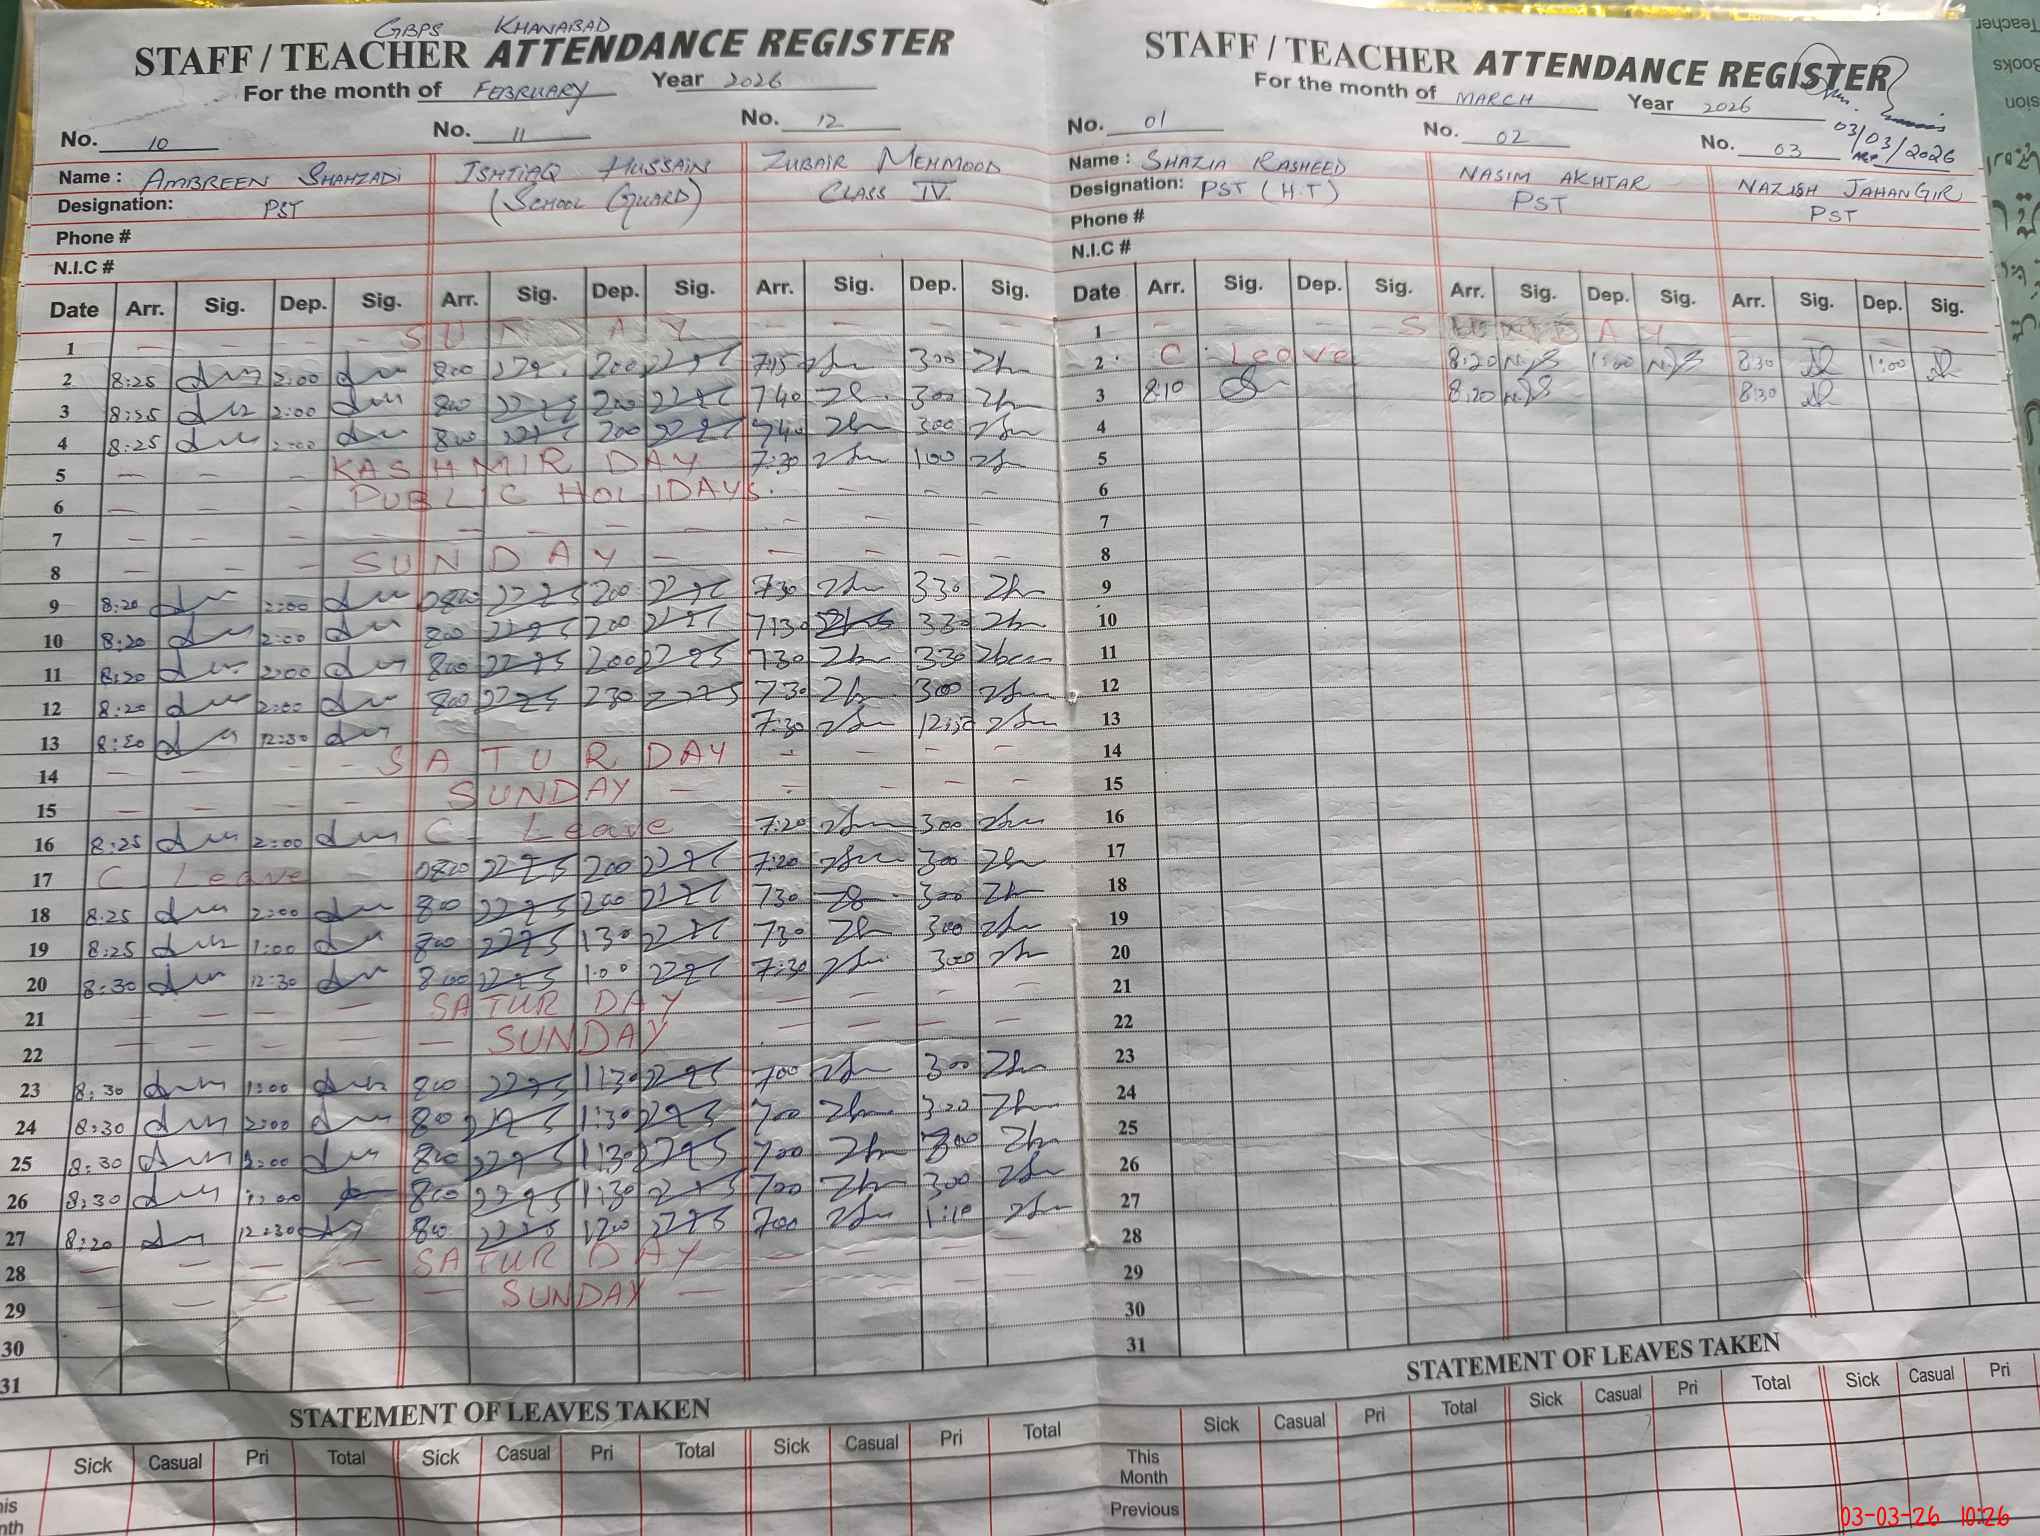 GBPS KHANABAD
STAFF / TEACHER ATTENDANCE REGISTER
For the month of FEBRUARY Year 2026
No. 10 No. 11 No. 12
Name : AMBREEN SHAHZADI ISHTIAQ HUSSAIN ZUBAIR MEHMOOD
Designation: PST (SCHOOL GUARD) CLASS IV
Phone #
N.I.C #
Date Arr. Sig. Dep. Sig. Arr. Sig. Dep. Sig. Arr. Sig. Dep. Sig.
1 SUNDAY
2 8:25 2:00 800 200 7:15 300
3 8:25 2:00 800 200 740 300
4 8:25 2:00 800 200 740 300
5 KASHMIR DAY 7:30 100
6 PUBLIC HOLIDAYS
7
8 SUNDAY
9 8:20 2:00 0800 200 730 330
10 8:20 2:00 800 200 7:30 330
11 8:20 2:00 800 200 730 330
12 8:20 2:00 800 230 730 300
13 8:20 12:30 7:30 12:30
14 SATURDAY
15 SUNDAY
16 8:25 2:00 C Leave 7:20 300
17 C Leave 0800 200 7:20 300
18 8:25 2:00 800 200 730 300
19 8:25 1:00 800 130 730 300
20 8:30 12:30 800 1:00 7:30 300
21 SATURDAY
22 SUNDAY
23 8:30 1:00 800 1:30 700 300
24 8:30 2:00 800 1:30 700 300
25 8:30 2:00 800 1:30 700 300
26 8:30 12:00 800 1:30 700 300
27 8:20 12:30 800 1200 700 1:10
28 SATURDAY
29 SUNDAY
30
31
STATEMENT OF LEAVES TAKEN
Sick Casual Pri Total Sick Casual Pri Total Sick Casual Pri Total
STAFF / TEACHER ATTENDANCE REGISTER
For the month of MARCH Year 2026
03/03/2026
No. 01 No. 02 No. 03
Name : SHAZIA RASHEED NASIM AKHTAR NAZISH JAHANGIR
Designation: PST (H.T) PST PST
Phone #
N.I.C #
Date Arr. Sig. Dep. Sig. Arr. Sig. Dep. Sig. Arr. Sig. Dep. Sig.
1 SUNDAY
2 C. Leave 8:20 1:00 8:30 1:00
3 8:10 8:20 8:30
4
5
6
7
8
9
10
11
12
13
14
15
16
17
18
19
20
21
22
23
24
25
26
27
28
29
30
31
STATEMENT OF LEAVES TAKEN
Sick Casual Pri Total Sick Casual Pri Total Sick Casual Pri
This Month
Previous
03-03-26 10:26